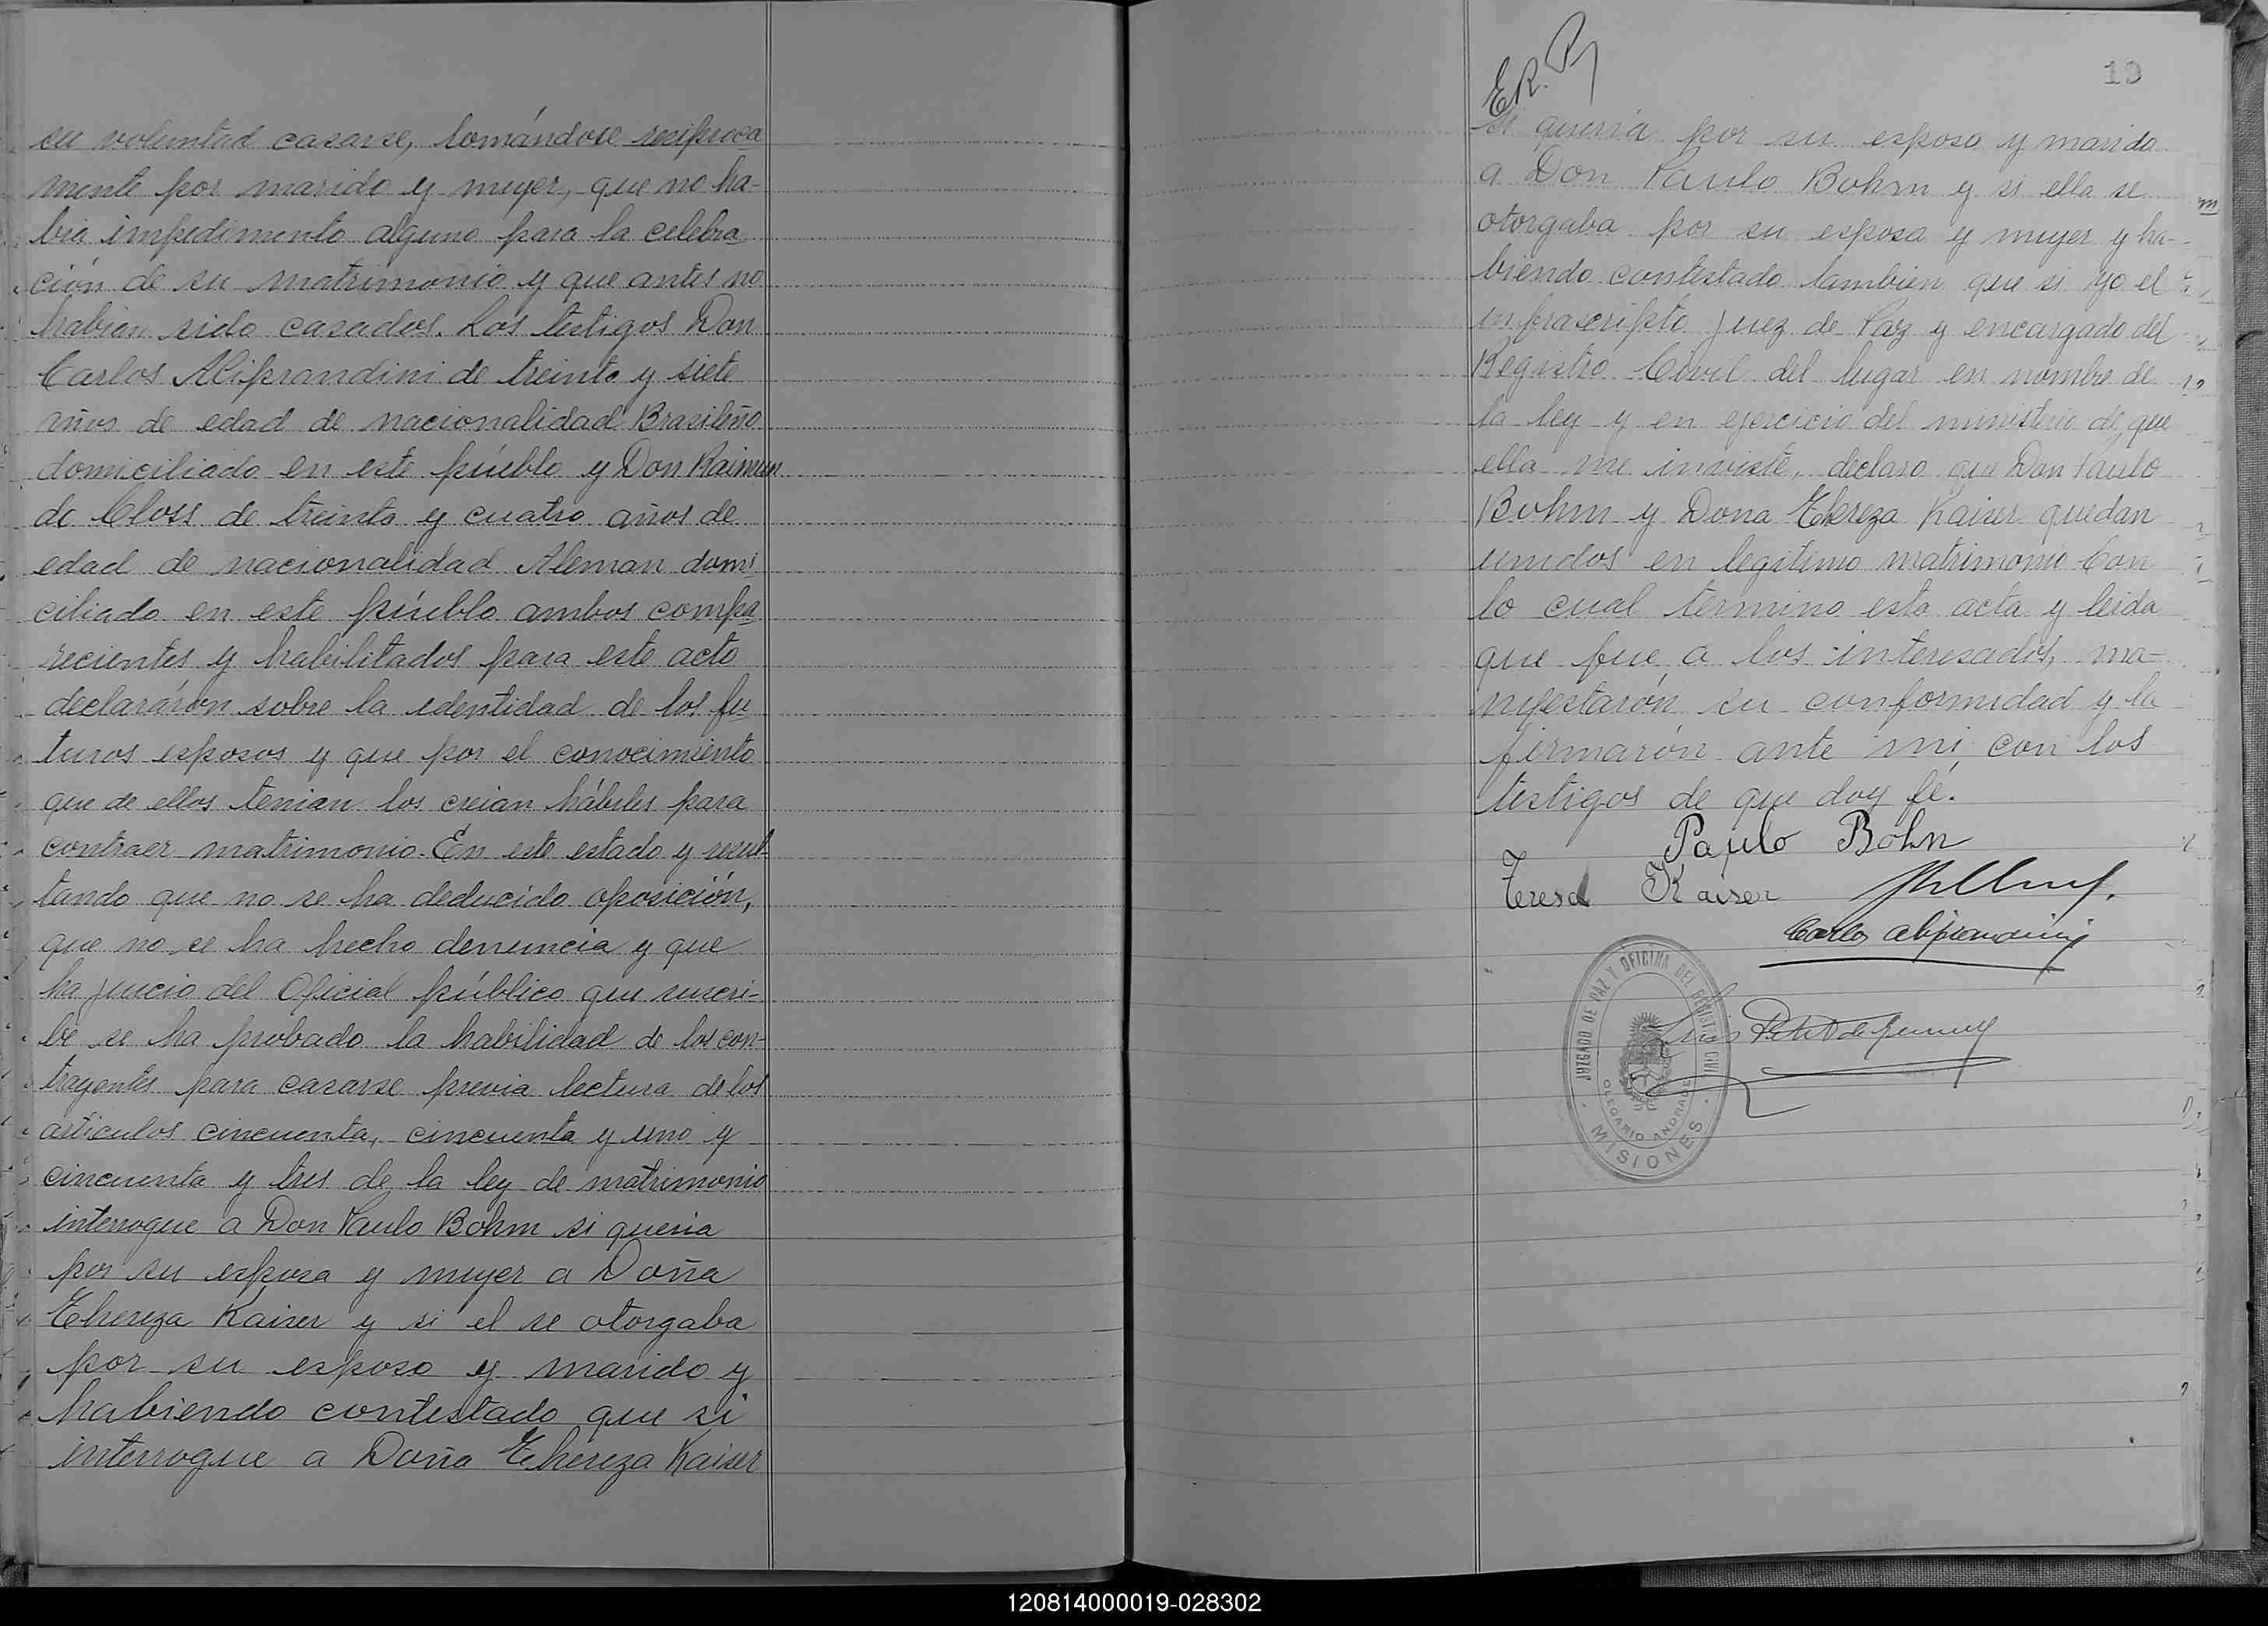 su voluntad casarse, tomándose resiproca
mente por marido y muyer, que no ha-
bia impedimento alguno para la celebra
ción de su matrimonio y que antes no
habian sido casados. Los testigos Don
Carlos Aliprandini de treinta y siete
años de edad de nacionalidad Brasileño
domiciliado en este púeblo y Don Raimun
do Closs de treinta y cuatro años de
edad de nacionalidad Aleman domi
ciliado en este púeblo ambos compa
recientes y habilitados para este acto
declararón sobre la edentidad de los fu
turos esposos y que por el conocimiento
que de ellos tenian los creian hábiles para
contraer matrimonio. En este estado y resul-
tando que no se ha deducido oposición,
que no se ha hecho denuncia y que
ha juicio del Oficial público que suscri-
be se ha probado la habilidad de los con-
trayentes para casarse previa lectura de los
articulos cincuenta, cincuenta y uno y
cincuenta y tres de la ley de matrimonio
interrogue a Don Paulo Bohm si queria
por su esposa y muyer a Doña
Thereza Kaiser y si el se otorgaba
por su esposo y marido y
habiendo contestado que si
interrogue a Doña Thereza Kaiser
19
E.R.
si queria por su esposo y marido
a Don Paulo Bohm y si ella se
otorgaba por su esposa y muyer y ha-
biendo contestado tambien que si yo el
infrascripto Juez de Paz y encargado del
Registro Civil del lugar en nombre de
la ley y en ejercicio del ministerio de que
ella me inviste, declaro que Don Paulo
Bohm y Dona Thereza Kaiser quedan
unidos en legitimo matrimonio Con
lo cual termino esta acta y leida
que fue a los interesados, ma-
nifestarón su conformidad y la
firmarón ante mi, con los
testigos de que doy fé.
Paulo Bohn
Teresa Kaiser
Carlos Aliprandini
Luis
JUZGADO DE PAZ Y OFICINA DEL REGISTRO CIVIL
OLEGARIO ANDRADE
MISIONES
120814000019-028302